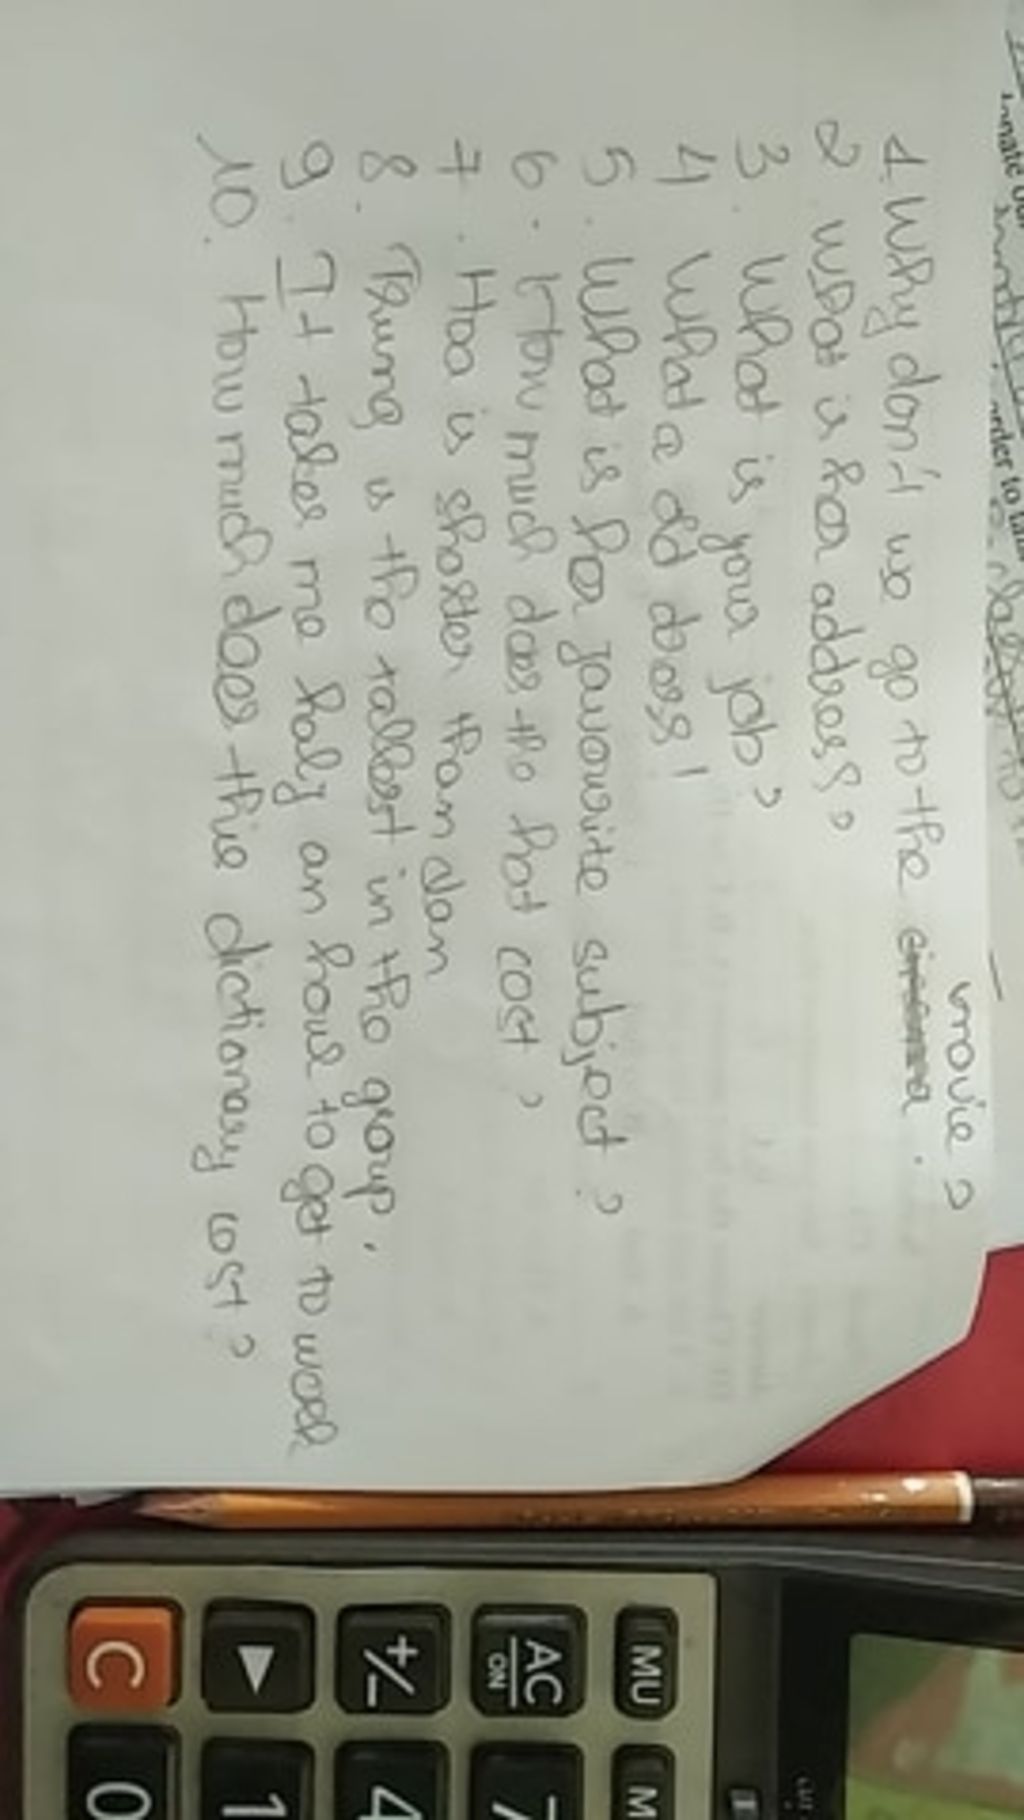 order to
movie ?
1. Why don't we go to the cinema.
2 What is her address?
3. What is your job?
4. What a old dress!
5. What is her favourite subject?
6. How much does the hat cost?
7. Hoa is shorter than Lan
8. Thung is the tallest in the group.
9. It takes me half an hour to get to work
10. How much does this dictionary cost?
MU
AC
ON
+/-
▶
C
M
7
4
1
0